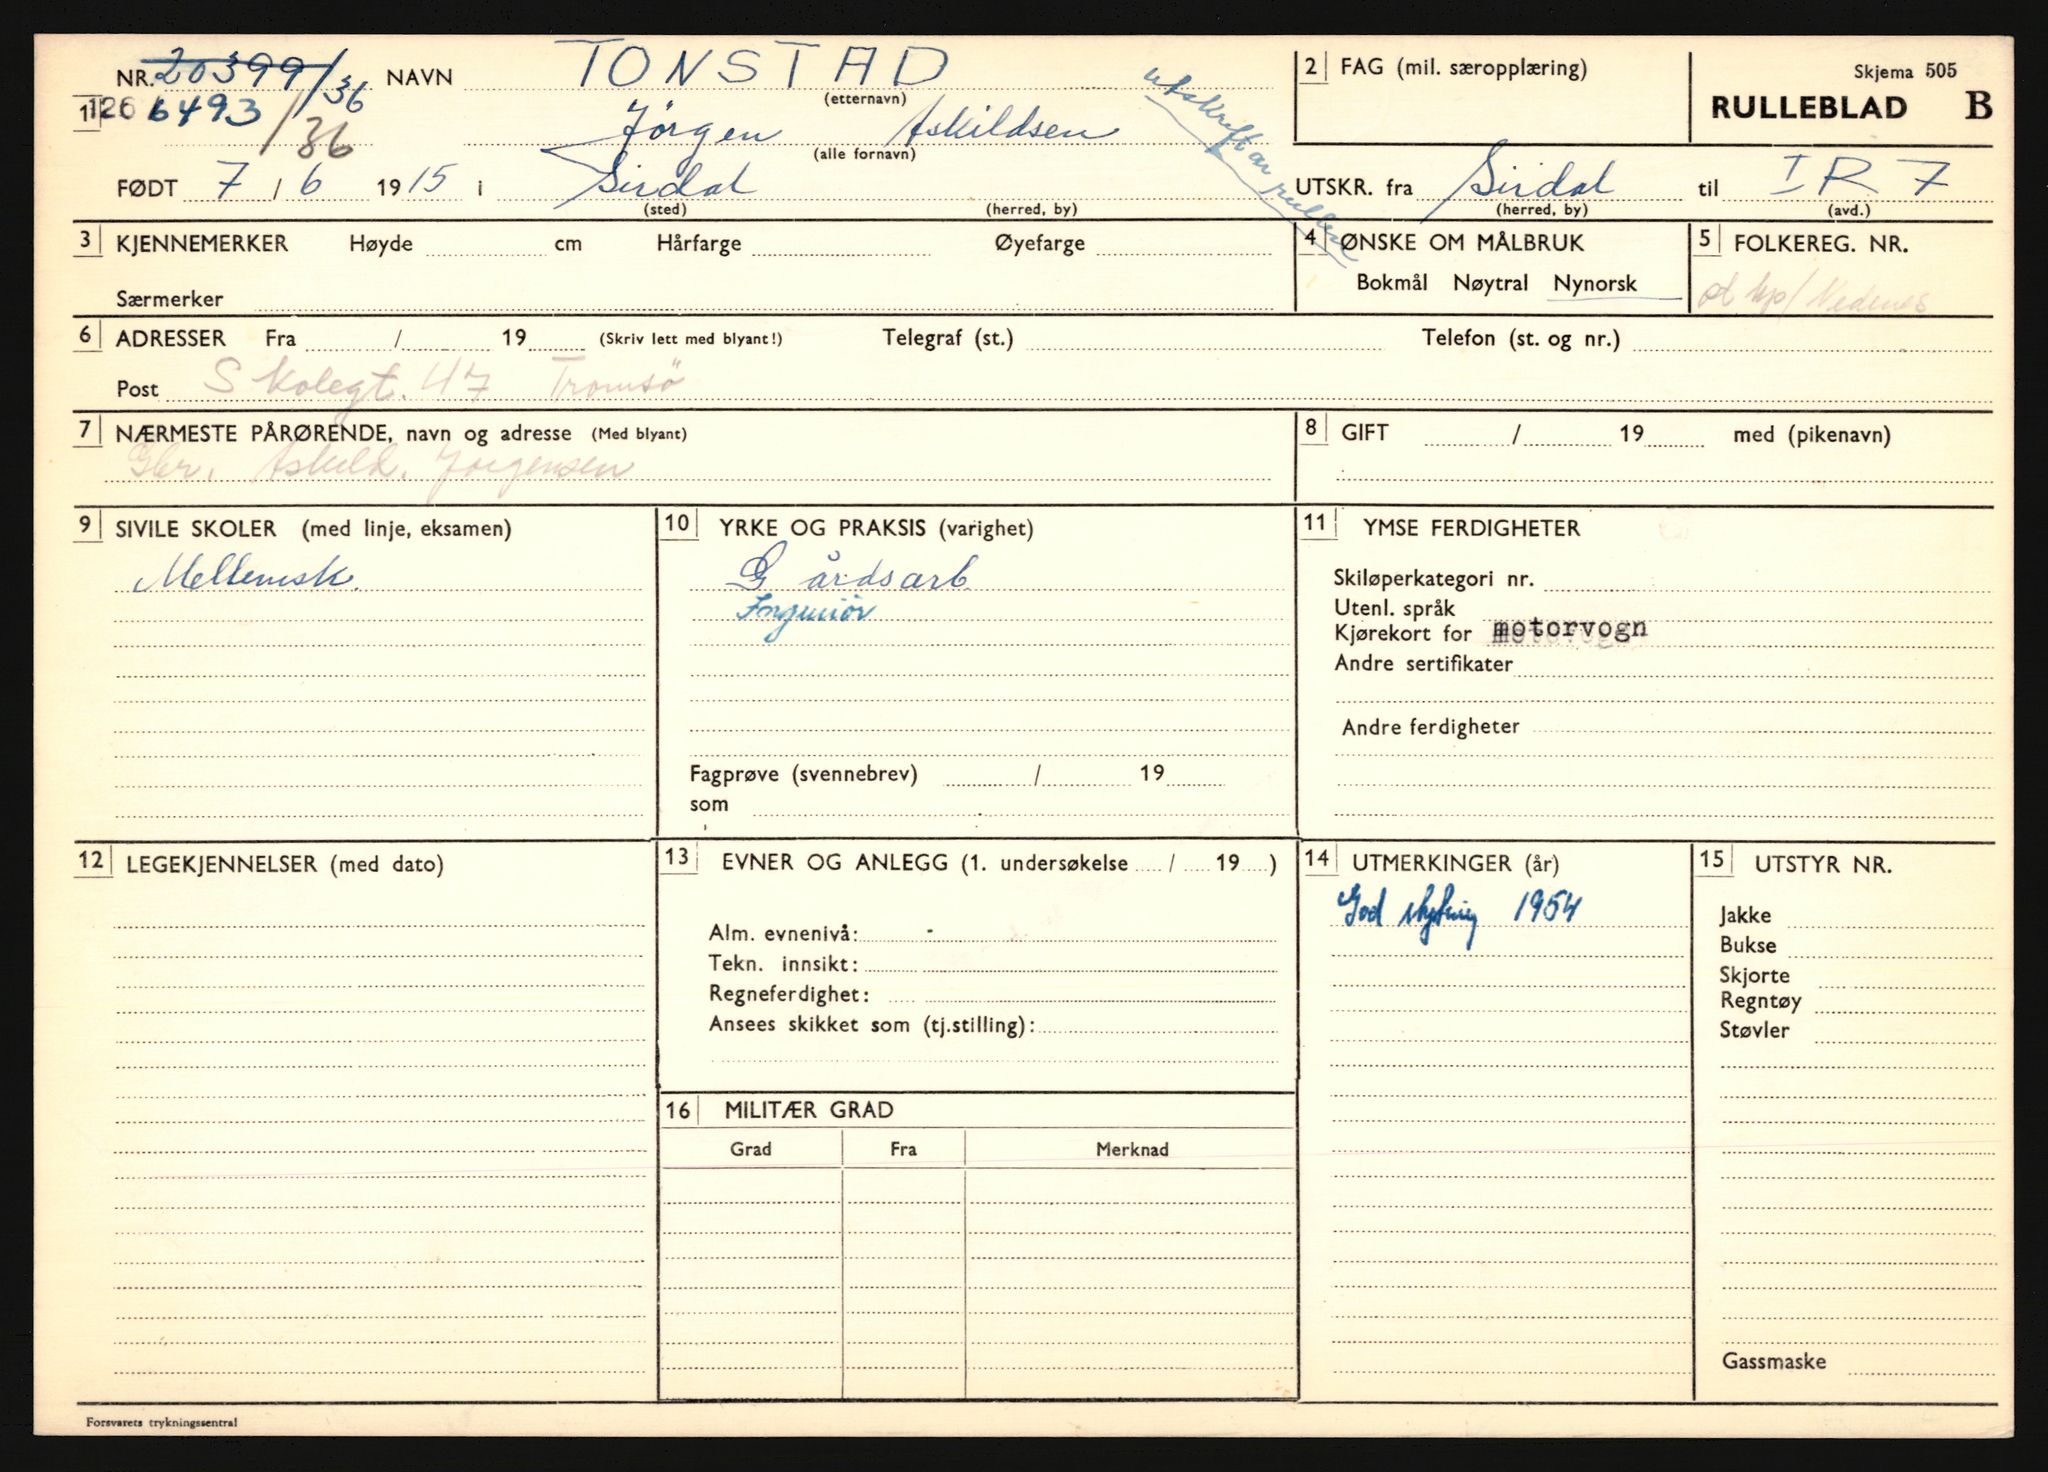 NR. 20399/36 NAVN TONSTAD
(etternavn)
1 126 6493/36 Jörgen Askildsen
(alle fornavn)
FØDT 7 / 6 1915 i Sirdal
(sted) (herred, by)
utskrift av rullen
2 FAG (mil. særopplæring)
Skjema 505
RULLEBLAD B
UTSKR. fra Sirdal til IR 7
(herred, by) (avd.)
3 KJENNEMERKER Høyde cm Hårfarge Øyefarge
Særmerker
4 ØNSKE OM MÅLBRUK
Bokmål Nøytral Nynorsk
5 FOLKEREG. NR.
Nedenes
6 ADRESSER Fra / 19 (Skriv lett med blyant!) Telegraf (st.) Telefon (st. og nr.)
Post Skolegt. 47 Tromsö
7 NÆRMESTE PÅRØRENDE, navn og adresse (Med blyant)
Gbr. Askild. Jörgensen
8 GIFT / 19 med (pikenavn)
9 SIVILE SKOLER (med linje, eksamen)
Mellemsk.
10 YRKE OG PRAKSIS (varighet)
Gårdsarb
Ingeniör
Fagprøve (svennebrev) / 19
som
11 YMSE FERDIGHETER
Skiløperkategori nr.
Utenl. språk
Kjørekort for motorvogn
Andre sertifikater
Andre ferdigheter
12 LEGEKJENNELSER (med dato)
13 EVNER OG ANLEGG (1. undersøkelse / 19 )
Alm. evnenivå:
Tekn. innsikt:
Regneferdighet:
Ansees skikket som (tj.stilling):
14 UTMERKINGER (år)
God skyting 1954
15 UTSTYR NR.
Jakke
Bukse
Skjorte
Regntøy
Støvler
Gassmaske
16 MILITÆR GRAD
Grad Fra Merknad
Forsvarets trykningssentral